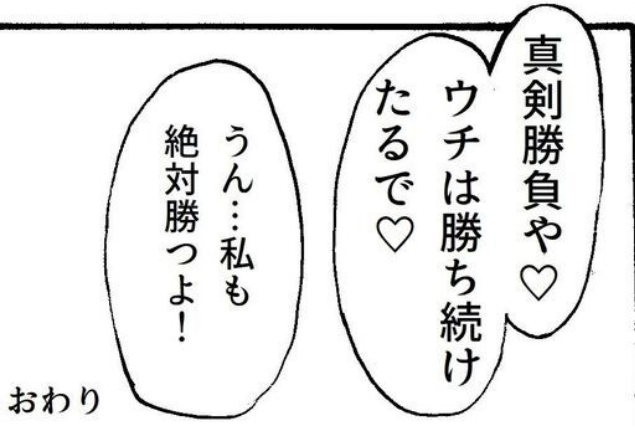 真剣勝負や♡
ウチは勝ち続け
たるで♡
うん…私も
絶対勝つよ！
おわり